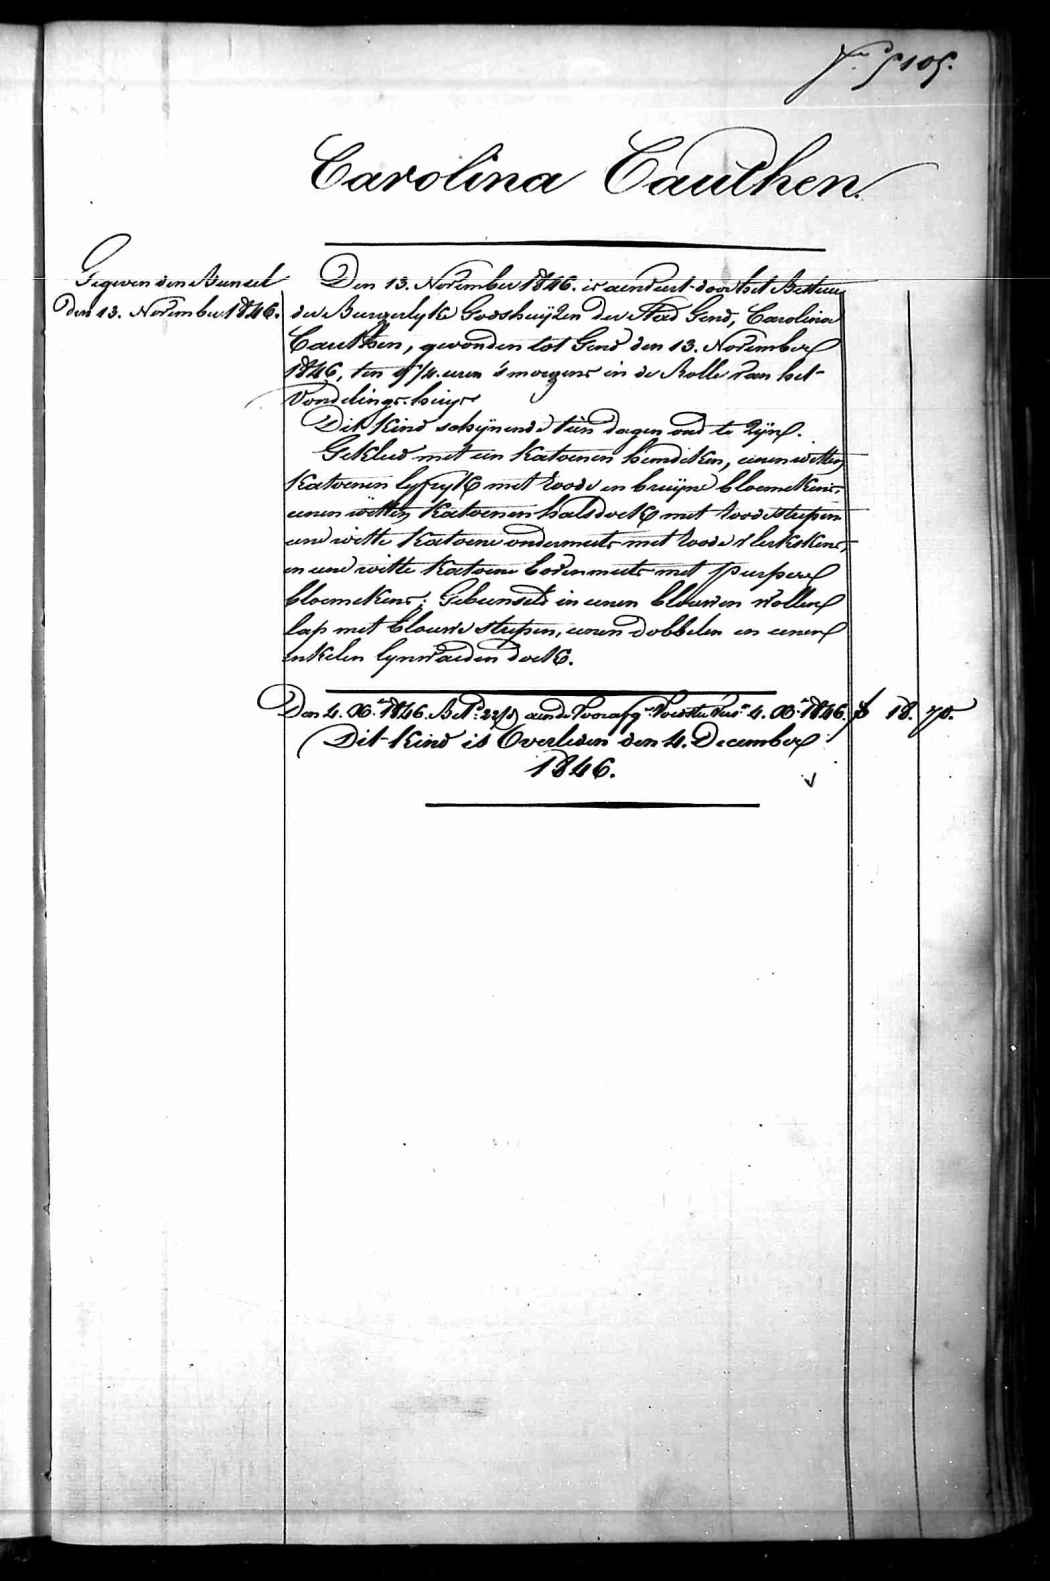 105.
Carolina Cauthen.
Gegeven den Bunsel
Den 13. November 1846.
Den 13. November 1846. is aenveert door het Bestuer
der Burgerlyke Godshuijzen der Stad Gend, Carolina
Cauthen, gevonden tot Gend den 13. November
1846, ten 9 1/4. uren 's morgens in de Rolle van het
Vondelings-huijs
Dit Kind schijnende tien dagen oud te zijn.
Gekleed met een katoenen hemdeken, eenen witten
katoenen lyfryk met roode en bruijne bloemekens,
eenen witten katoenen halsdoek met roode strepen
eene witte katoene ondermuts met roode vlerkskens,
en eene witte katoene bovenmuts met purpere
bloemekens; Gebunseld in eenen blauwen wollen
lap met blauwe strepen, eenen dobbelen en eenen
enkelen lynwaeden doek.
Den 4. Xb. 1846. Bet. aen de 4. Xb. 1846. 18. 70.
Dit Kind is Overleden den 4. December
1846.